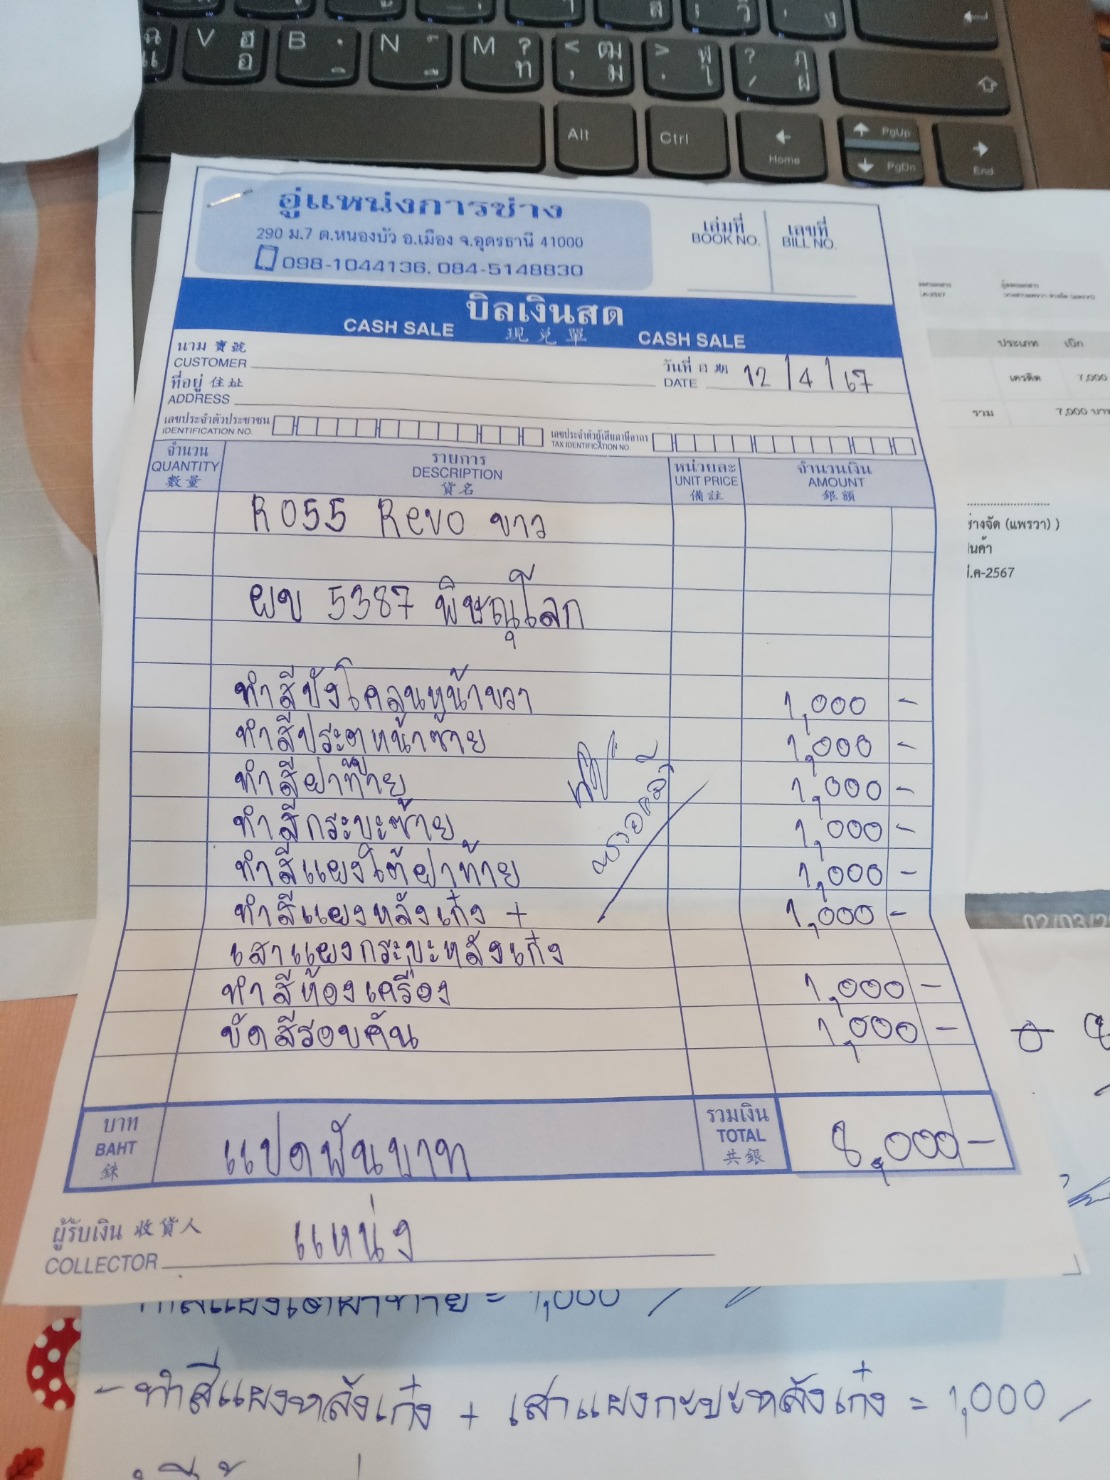 V ฮ อ B N M ? ท < ฒ ม > ฬ ใ ? / ฦ ฝ
Alt Ctrl Home PgUp PgDn End
อู่แหน่งการช่าง
290 ม.7 ต.หนองบัว อ.เมือง จ.อุดรธานี 41000
098-1044136, 084-5148830
เล่มที่ เลขที่
BOOK NO. BILL NO.
บิลเงินสด
CASH SALE 現兌單 CASH SALE
นาม 寶號
CUSTOMER
วันที่ 日期
DATE 12/4/67
ที่อยู่ 住址
ADDRESS
เลขประจำตัวประชาชน
IDENTIFICATION NO.
เลขประจำตัวผู้เสียภาษีอากร
TAX IDENTIFICATION NO.
จำนวน รายการ หน่วยละ จำนวนเงิน
QUANTITY DESCRIPTION UNIT PRICE AMOUNT
數量 貨名 備註 銀額
R055 Revo ขาว
ผข 5387 พิษณุโลก
ทำสีบังโคลนหน้าขวา 1,000 -
ทำสีประตูหน้าซ้าย 1,000 -
ทำสีฝาท้าย 1,000 -
ทำสีกระบะซ้าย 1,000 -
ทำสีแผงใต้ฝาท้าย 1,000 -
ทำสีแผงหลังเก๋ง + 1,000 -
เสาแผงกระบะหลังเก๋ง
ทำสีห้องเครื่อง 1,000 -
ขัดสีรอบคัน 1,000 -
บาท
BAHT
銖
แปดพันบาท
รวมเงิน
TOTAL
共銀
8,000 -
ผู้รับเงิน 收貨人
COLLECTOR แหน่ง
ประเภท เบิก
เครดิต 7,000
รวม 7,000 บาท
ช่างจัด (แพรวา) )
ค-2567
02/03/2
ทำสีแผงใต้ฝาท้าย = 1,000 /
- ทำสีแผงหลังเก๋ง + เสาแผงกะบะหลังเก๋ง = 1,000 /